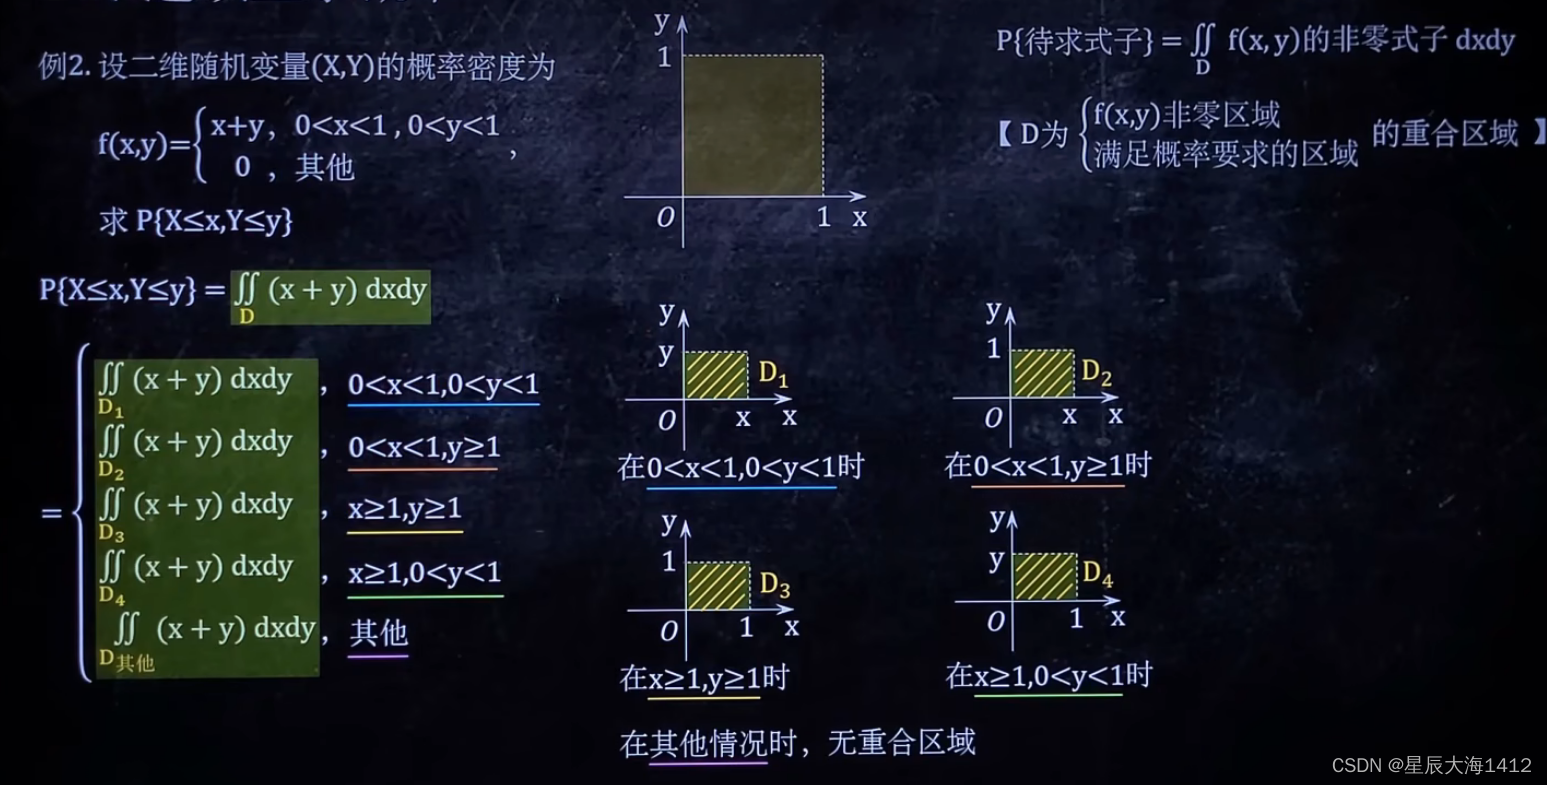 例2. 设二维随机变量(X,Y)的概率密度为
f(x,y)={x+y, 0<x<1 , 0<y<1
0 , 其他 ,
求 P{X≤x,Y≤y}
y
1
O
1
x
P{待求式子} = ∬ f(x, y)的非零式子 dxdy
D
【 D为 {f(x,y)非零区域
满足概率要求的区域 的重合区域 】
P{X≤x,Y≤y} = ∬ (x + y) dxdy
D
= {∬ (x + y) dxdy , 0<x<1,0<y<1
D₁
∬ (x + y) dxdy , 0<x<1,y≥1
D₂
∬ (x + y) dxdy , x≥1,y≥1
D₃
∬ (x + y) dxdy , x≥1,0<y<1
D₄
∬ (x + y) dxdy , 其他
D其他
y
y
D₁
O
x
x
在0<x<1,0<y<1时
y
1
D₂
O
x
x
在0<x<1,y≥1时
y
1
D₃
O
1
x
在x≥1,y≥1时
y
y
D₄
O
1
x
在x≥1,0<y<1时
在其他情况时，无重合区域
CSDN @星辰大海1412